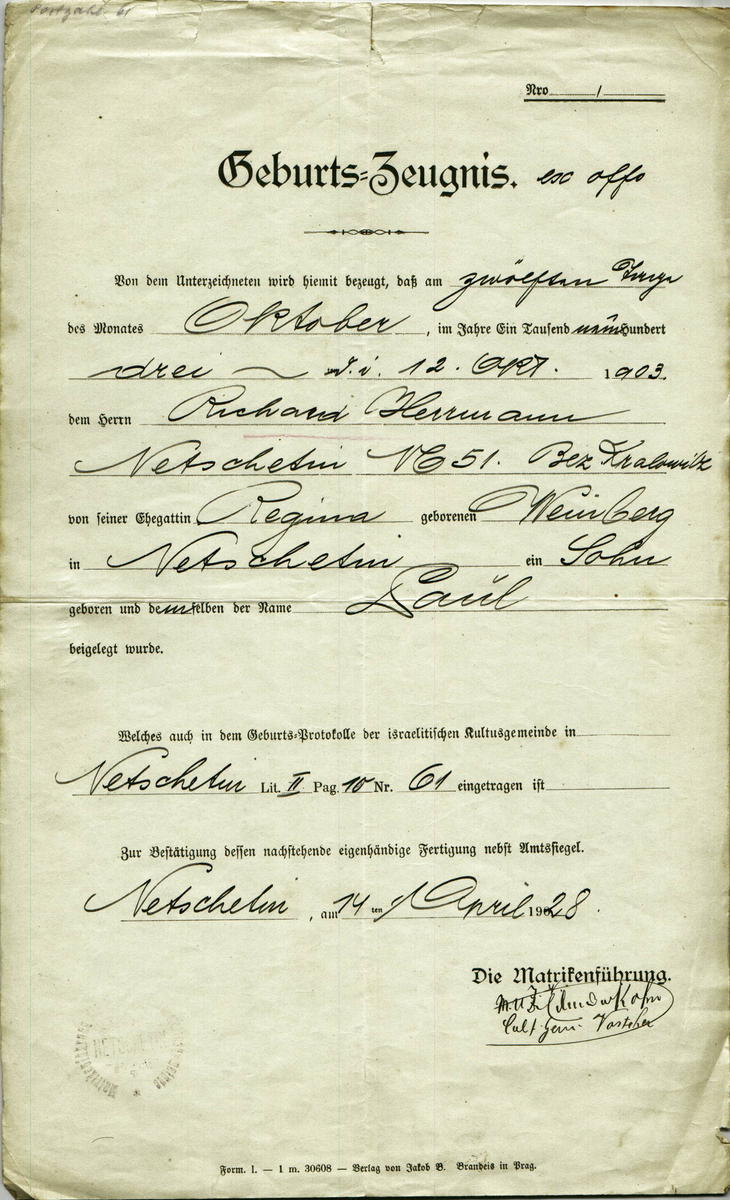 Nro 1
Geburts-Zeugnis. ex offo
Von dem Unterzeichneten wird hiemit bezeugt, daß am zwölften Tage
des Monates Oktober, im Jahre Ein Tausend neunHundert
drei d. i. 12. Okt. 1903.
dem Herrn Richard Herrmann
Netschetin NC 51. Bez Kralowitz
von seiner Ehegattin Regina geborenen Weinberg
in Netschetin ein Sohn
geboren und demselben der Name Paul
beigelegt wurde.
Welches auch in dem Geburts-Protokolle der israelitischen Kultusgemeinde in
Netschetin Lit. II Pag. 10 Nr. 61 eingetragen ist
Zur Bestätigung dessen nachstehende eigenhändige Fertigung nebst Amtssiegel.
Netschetin, am 14 ten April 1928.
Die Matrikenführung.
Kohn
Cult. gem. Vorsteher
NETSCHETIN
Form. 1. — 1 m. 30608 — Verlag von Jakob B. Brandeis in Prag.